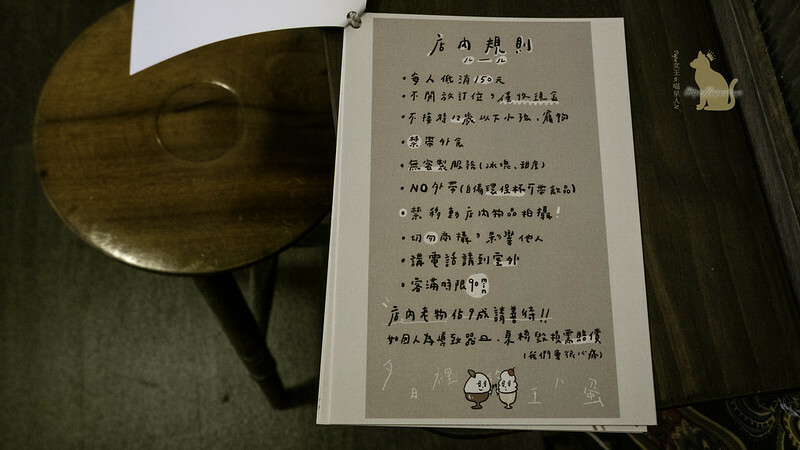 店內規則
ルール
・每人低消150元
・不開放訂位，僅收現金
・不接待12歲以下小孩、寵物
・禁帶外食
・無客製服務(冰塊、甜度)
・NO外帶(自備環保杯可帶飲品)
・禁移動店內物品拍攝!
・切勿商攝，影響他人
・講電話請到室外
・客滿時限90min
店內老物佔9成請善待!!
如因人為導致器皿、桌椅毀損需賠償
(我們會很心疼)
女王和喵星人